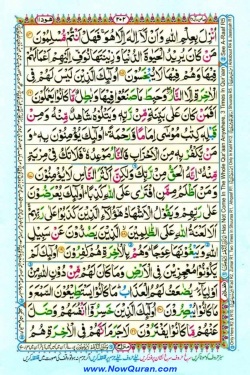 اُنْزِلَ بِعِلْمِ اللّٰهِ وَاَنْ لَّاۤ اِلٰهَ اِلَّا هُوَ فَهَلْ اَنْتُمْ مُّسْلِمُوْنَ
مَنْ كَانَ يُرِيْدُ الْحَيٰوةَ الدُّنْيَا وَزِيْنَتَهَا نُوَفِّ اِلَيْهِمْ اَعْمَالَهُمْ
فِيْهَا وَهُمْ فِيْهَا لَا يُبْخَسُوْنَ اُولٰٓئِكَ الَّذِيْنَ لَيْسَ لَهُمْ فِى
الْاٰخِرَةِ اِلَّا النَّارُ وَحَبِطَ مَا صَنَعُوْا فِيْهَا وَبٰطِلٌ مَّا كَانُوْا يَعْمَلُوْنَ
اَفَمَنْ كَانَ عَلٰى بَيِّنَةٍ مِّنْ رَّبِّهٖ وَيَتْلُوْهُ شَاهِدٌ مِّنْهُ وَمِنْ
قَبْلِهٖ كِتٰبُ مُوْسٰٓى اِمَامًا وَّرَحْمَةً اُولٰٓئِكَ يُؤْمِنُوْنَ بِهٖ وَمَنْ
يَّكْفُرْ بِهٖ مِنَ الْاَحْزَابِ فَالنَّارُ مَوْعِدُهٗ فَلَا تَكُ فِىْ مِرْيَةٍ
مِّنْهُ اِنَّهُ الْحَقُّ مِنْ رَّبِّكَ وَلٰكِنَّ اَكْثَرَ النَّاسِ لَا يُؤْمِنُوْنَ
وَمَنْ اَظْلَمُ مِمَّنِ افْتَرٰى عَلَى اللّٰهِ كَذِبًا اُولٰٓئِكَ يُعْرَضُوْنَ
عَلٰى رَبِّهِمْ وَيَقُوْلُ الْاَشْهَادُ هٰٓؤُلَاۤءِ الَّذِيْنَ كَذَبُوْا عَلٰى
رَبِّهِمْ اَلَا لَعْنَةُ اللّٰهِ عَلَى الظّٰلِمِيْنَ الَّذِيْنَ يَصُدُّوْنَ عَنْ سَبِيْلِ
اللّٰهِ وَيَبْغُوْنَهَا عِوَجًا وَهُمْ بِالْاٰخِرَةِ هُمْ كٰفِرُوْنَ اُولٰٓئِكَ لَمْ
يَكُوْنُوْا مُعْجِزِيْنَ فِى الْاَرْضِ وَمَا كَانَ لَهُمْ مِّنْ دُوْنِ اللّٰهِ مِنْ
اَوْلِيَآءَ يُضٰعَفُ لَهُمُ الْعَذَابُ مَا كَانُوْا يَسْتَطِيْعُوْنَ السَّمْعَ وَ
مَا كَانُوْا يُبْصِرُوْنَ اُولٰٓئِكَ الَّذِيْنَ خَسِرُوْا اَنْفُسَهُمْ وَضَلَّ
عَنْهُمْ مَّا كَانُوْا يَفْتَرُوْنَ لَا جَرَمَ اَنَّهُمْ فِى الْاٰخِرَةِ هُمُ
www.NowQuran.com